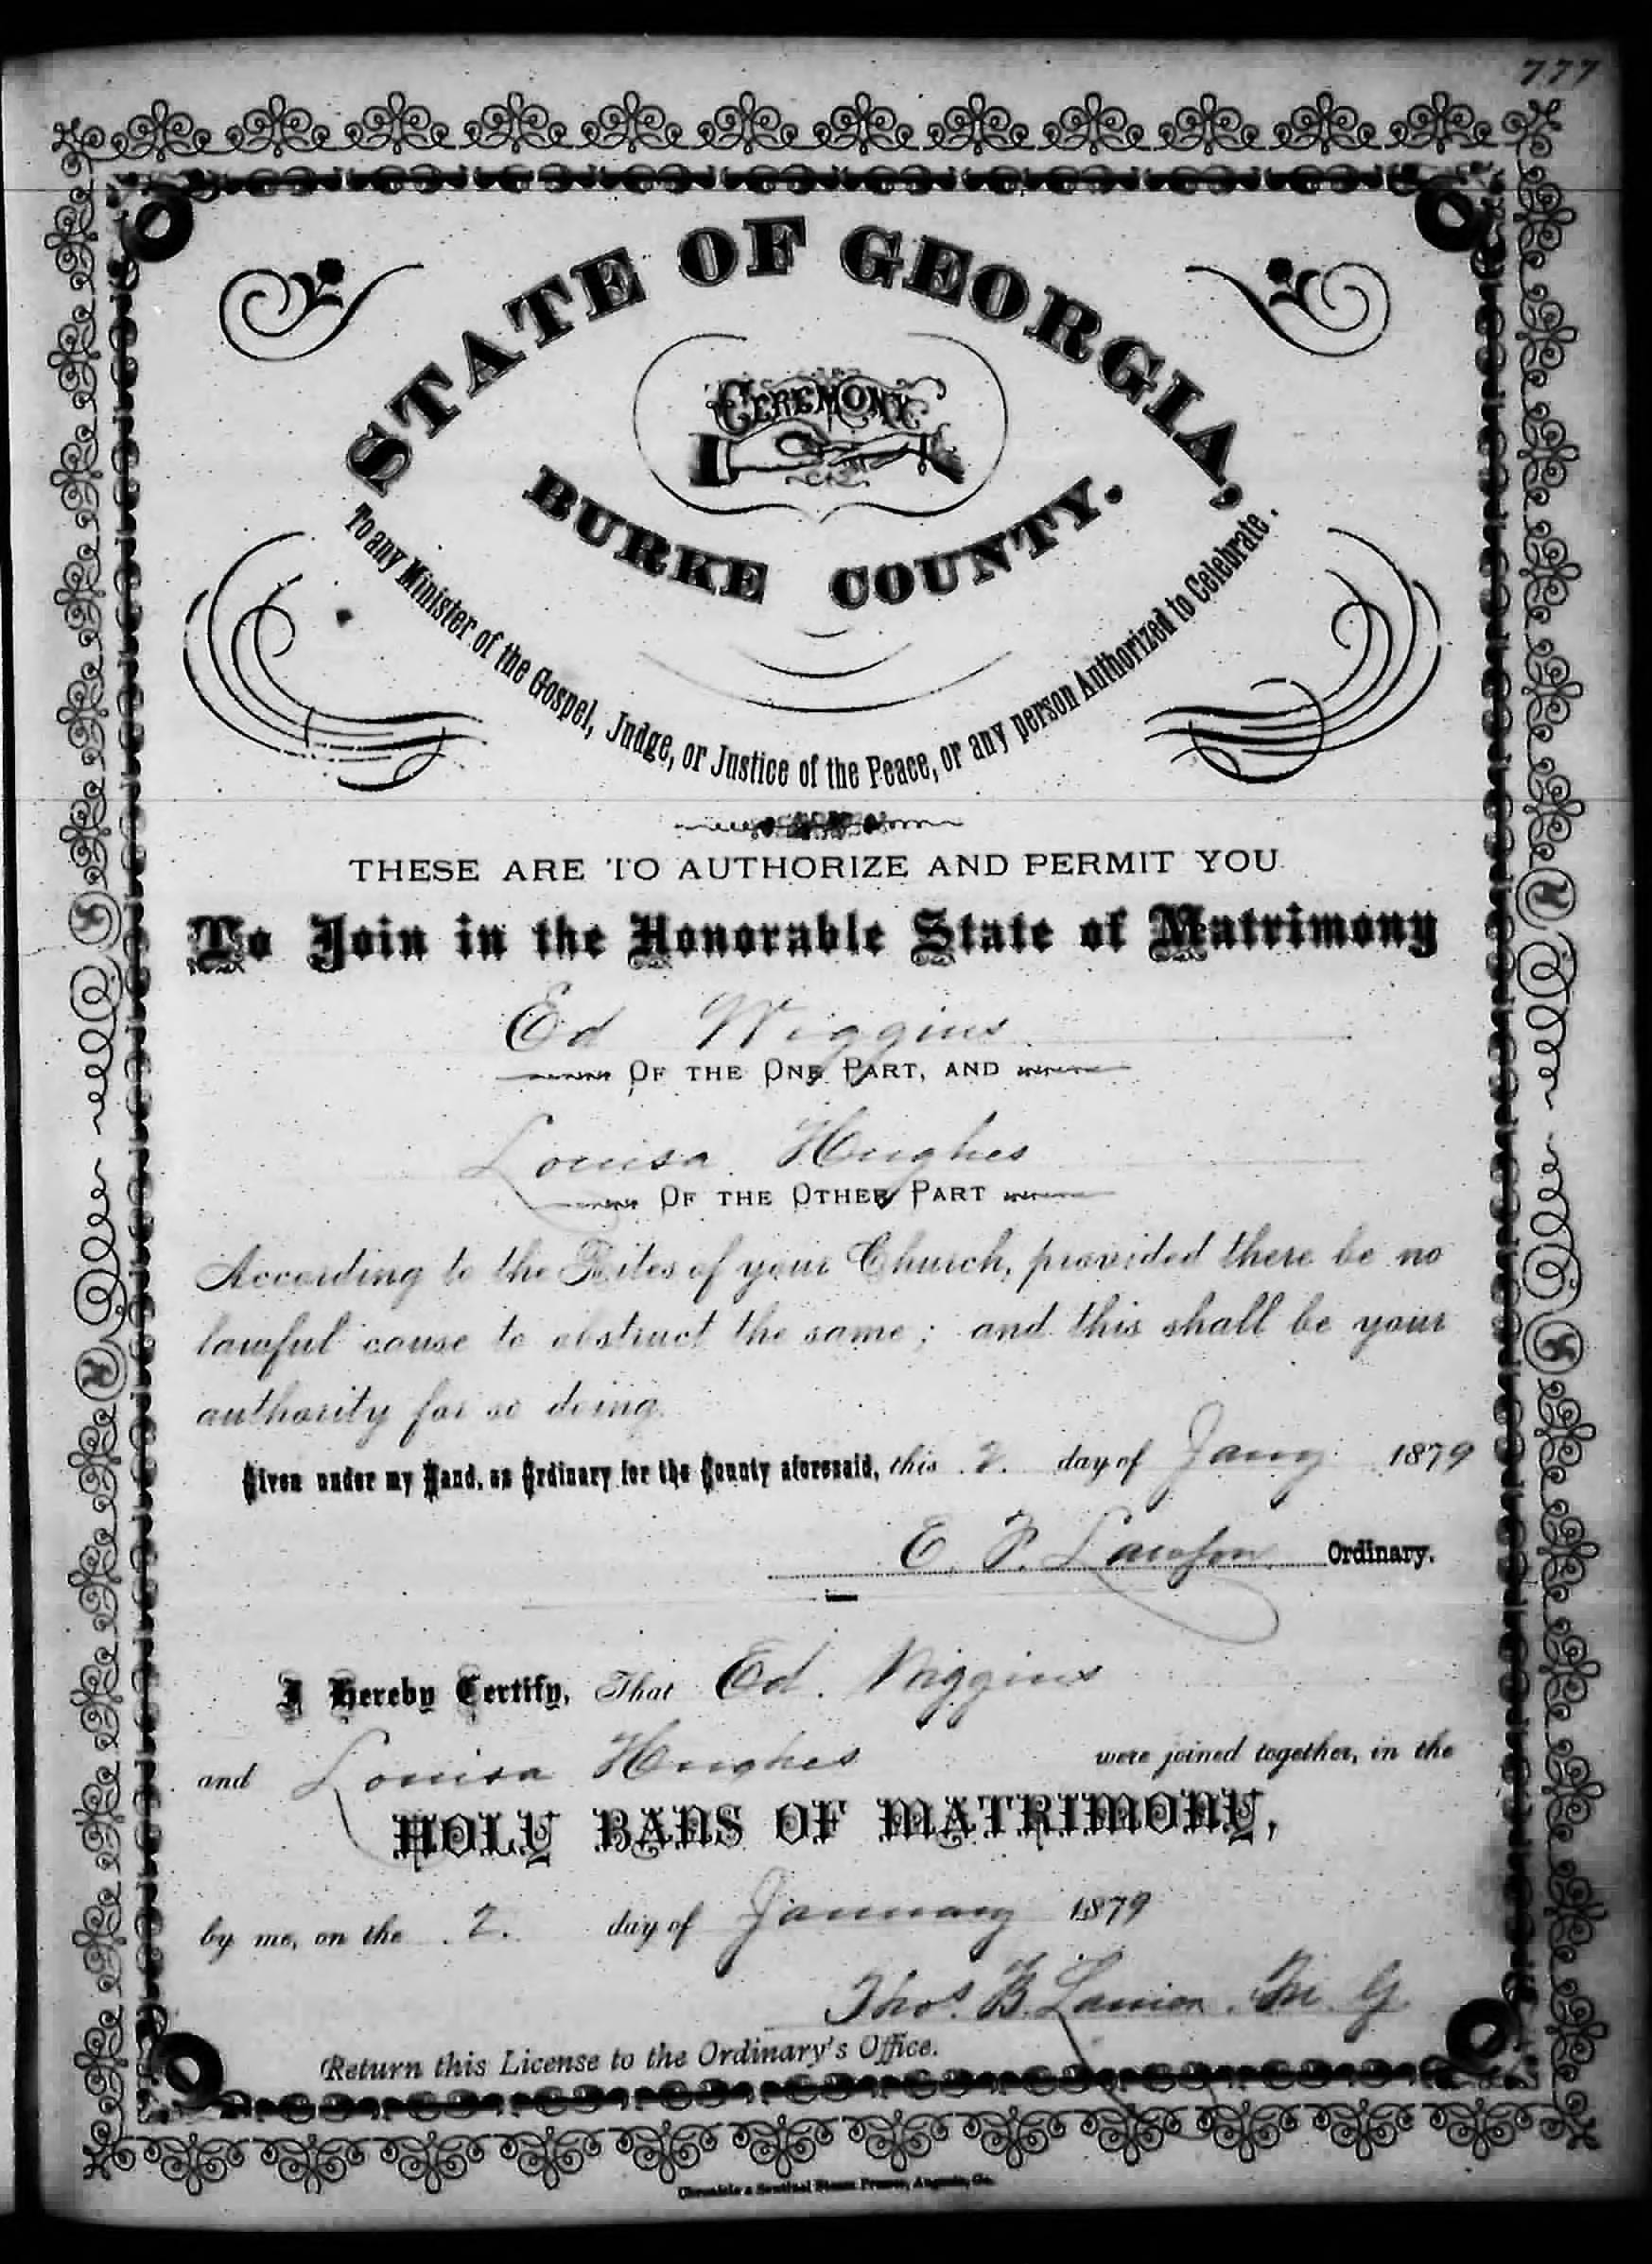 777
STATE OF GEORGIA,
CEREMONY
BURKE COUNTY.
To any Minister of the Gospel, Judge, or Justice of the Peace, or any person Authorized to Celebrate.
THESE ARE TO AUTHORIZE AND PERMIT YOU
To Join in the Honorable State of Matrimony
Ed Wiggins
OF THE ONE PART, AND
Louisa Hughes
OF THE OTHER PART
According to the Rites of your Church, provided there be no
lawful cause to obstruct the same; and this shall be your
authority for so doing.
Given under my Hand, as Ordinary for the County aforesaid, this 2. day of Jany 1879
E. F. Lawson Ordinary.
I Hereby Certify, That Ed. Wiggins
and Louisa Hughes were joined together, in the
HOLY BANS OF MATRIMONY,
by me, on the 2. day of January 1879
Thos. B. Lanier. M. G.
Return this License to the Ordinary's Office.
Chronicle & Sentinel Steam Presses, Augusta, Ga.